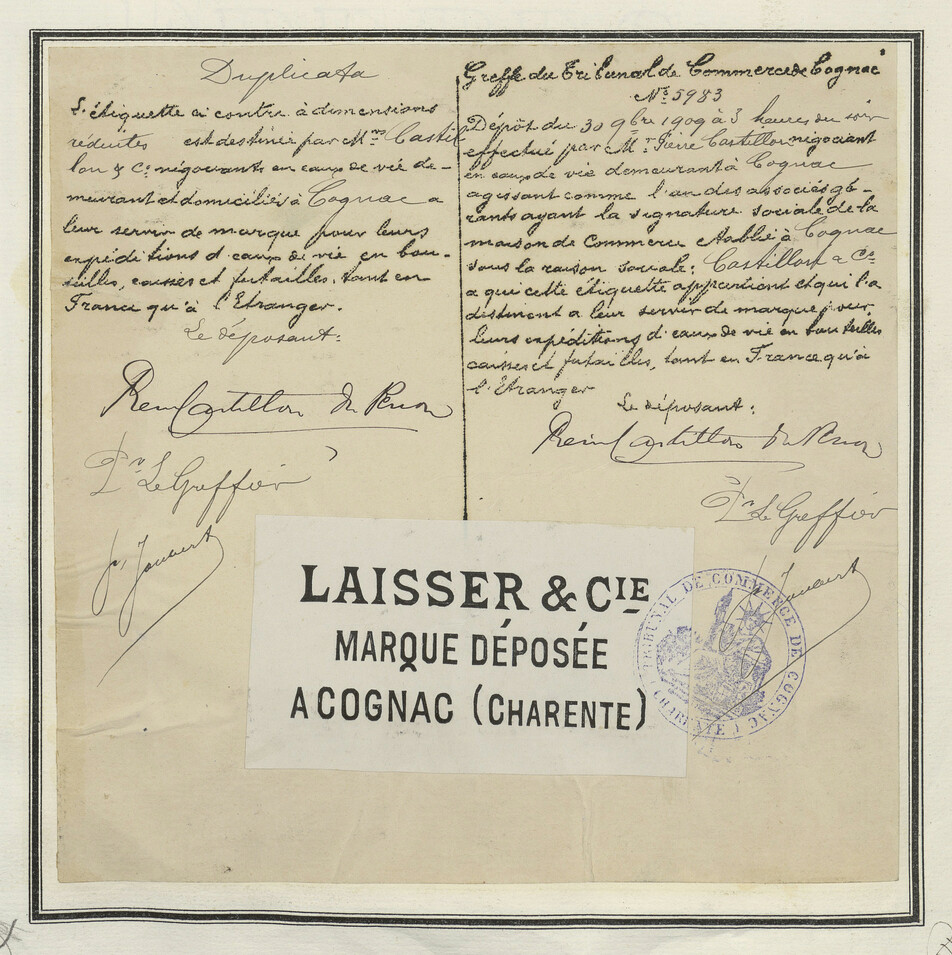 Duplicata
L'étiquette ci contre à dimensions
réduites est destinée par Mrs Castil
lon & Co négociants en eaux de vie de-
meurant et domiciliés à Cognac a
leur servir de marque pour leurs
expéditions d'eaux de vie en bou-
teilles, caisses et futailles, tant en
France qu'à l'Etranger.
Le déposant:
Castillon du Perron
Pr Le Greffier
Joubert
Greffe du Tribunal de Commerce de Cognac
No 5983
Dépôt du 30 9bre 1909 à 3 heures du soir
effectué par Mr Pierre Castillon négociant
en eaux de vie demeurant à Cognac
agissant comme l'un des associés gé-
rants ayant la signature sociale de la
maison de Commerce établie à Cognac
sous la raison sociale: Castillon & Co
a qui cette étiquette appartient et qui l'a
destinent a leur servir de marque pour
leurs expéditions d'eaux de vie en bouteilles
caisses et futailles, tant en France qu'à
l'Etranger
Le déposant:
Castillon du Perron
Pr Le Greffier
Joubert
LAISSER & CIE
MARQUE DÉPOSÉE
A COGNAC (CHARENTE)
TRIBUNAL DE COMMERCE DE COGNAC
(CHARENTE)